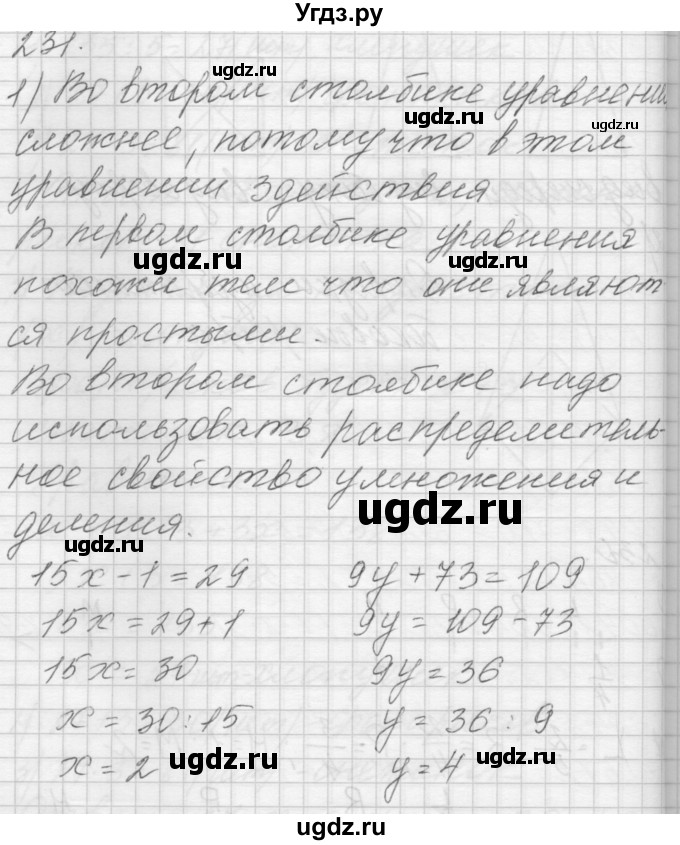 Угдз.ru
231.
ugdz.ru
1) Во втором столбике уравнении
ugdz.ru ugdz.ru
сложнее, потому что в этом
уравнении 3 действия
В первом столбике уравнения
ugdz.ru ugdz.ru
похожи тем что они являют
ся простыми.
Во втором столбике надо
использовать распределитель-
ное свойство умножения и
ugdz.ru
деления.
ugdz.ru
15x - 1 = 29 9y + 73 = 109
15x = 29 + 1 9y = 109 - 73
15x = 30 9y = 36
x = 30 : 15 y = 36 : 9
x = 2 y = 4
ugdz.ru ugdz.ru
ugdz.ru